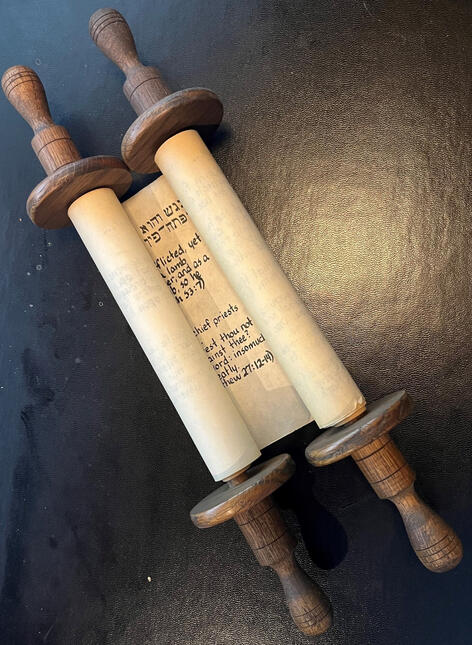 נגש והוא
יפתח־פיו
flicted, yet
lamb
er, and as a
b, so he
h 53:7)
hief priests
est thou not
ainst thee?
ord: insomuc
eatly.
thew 27:12-14)